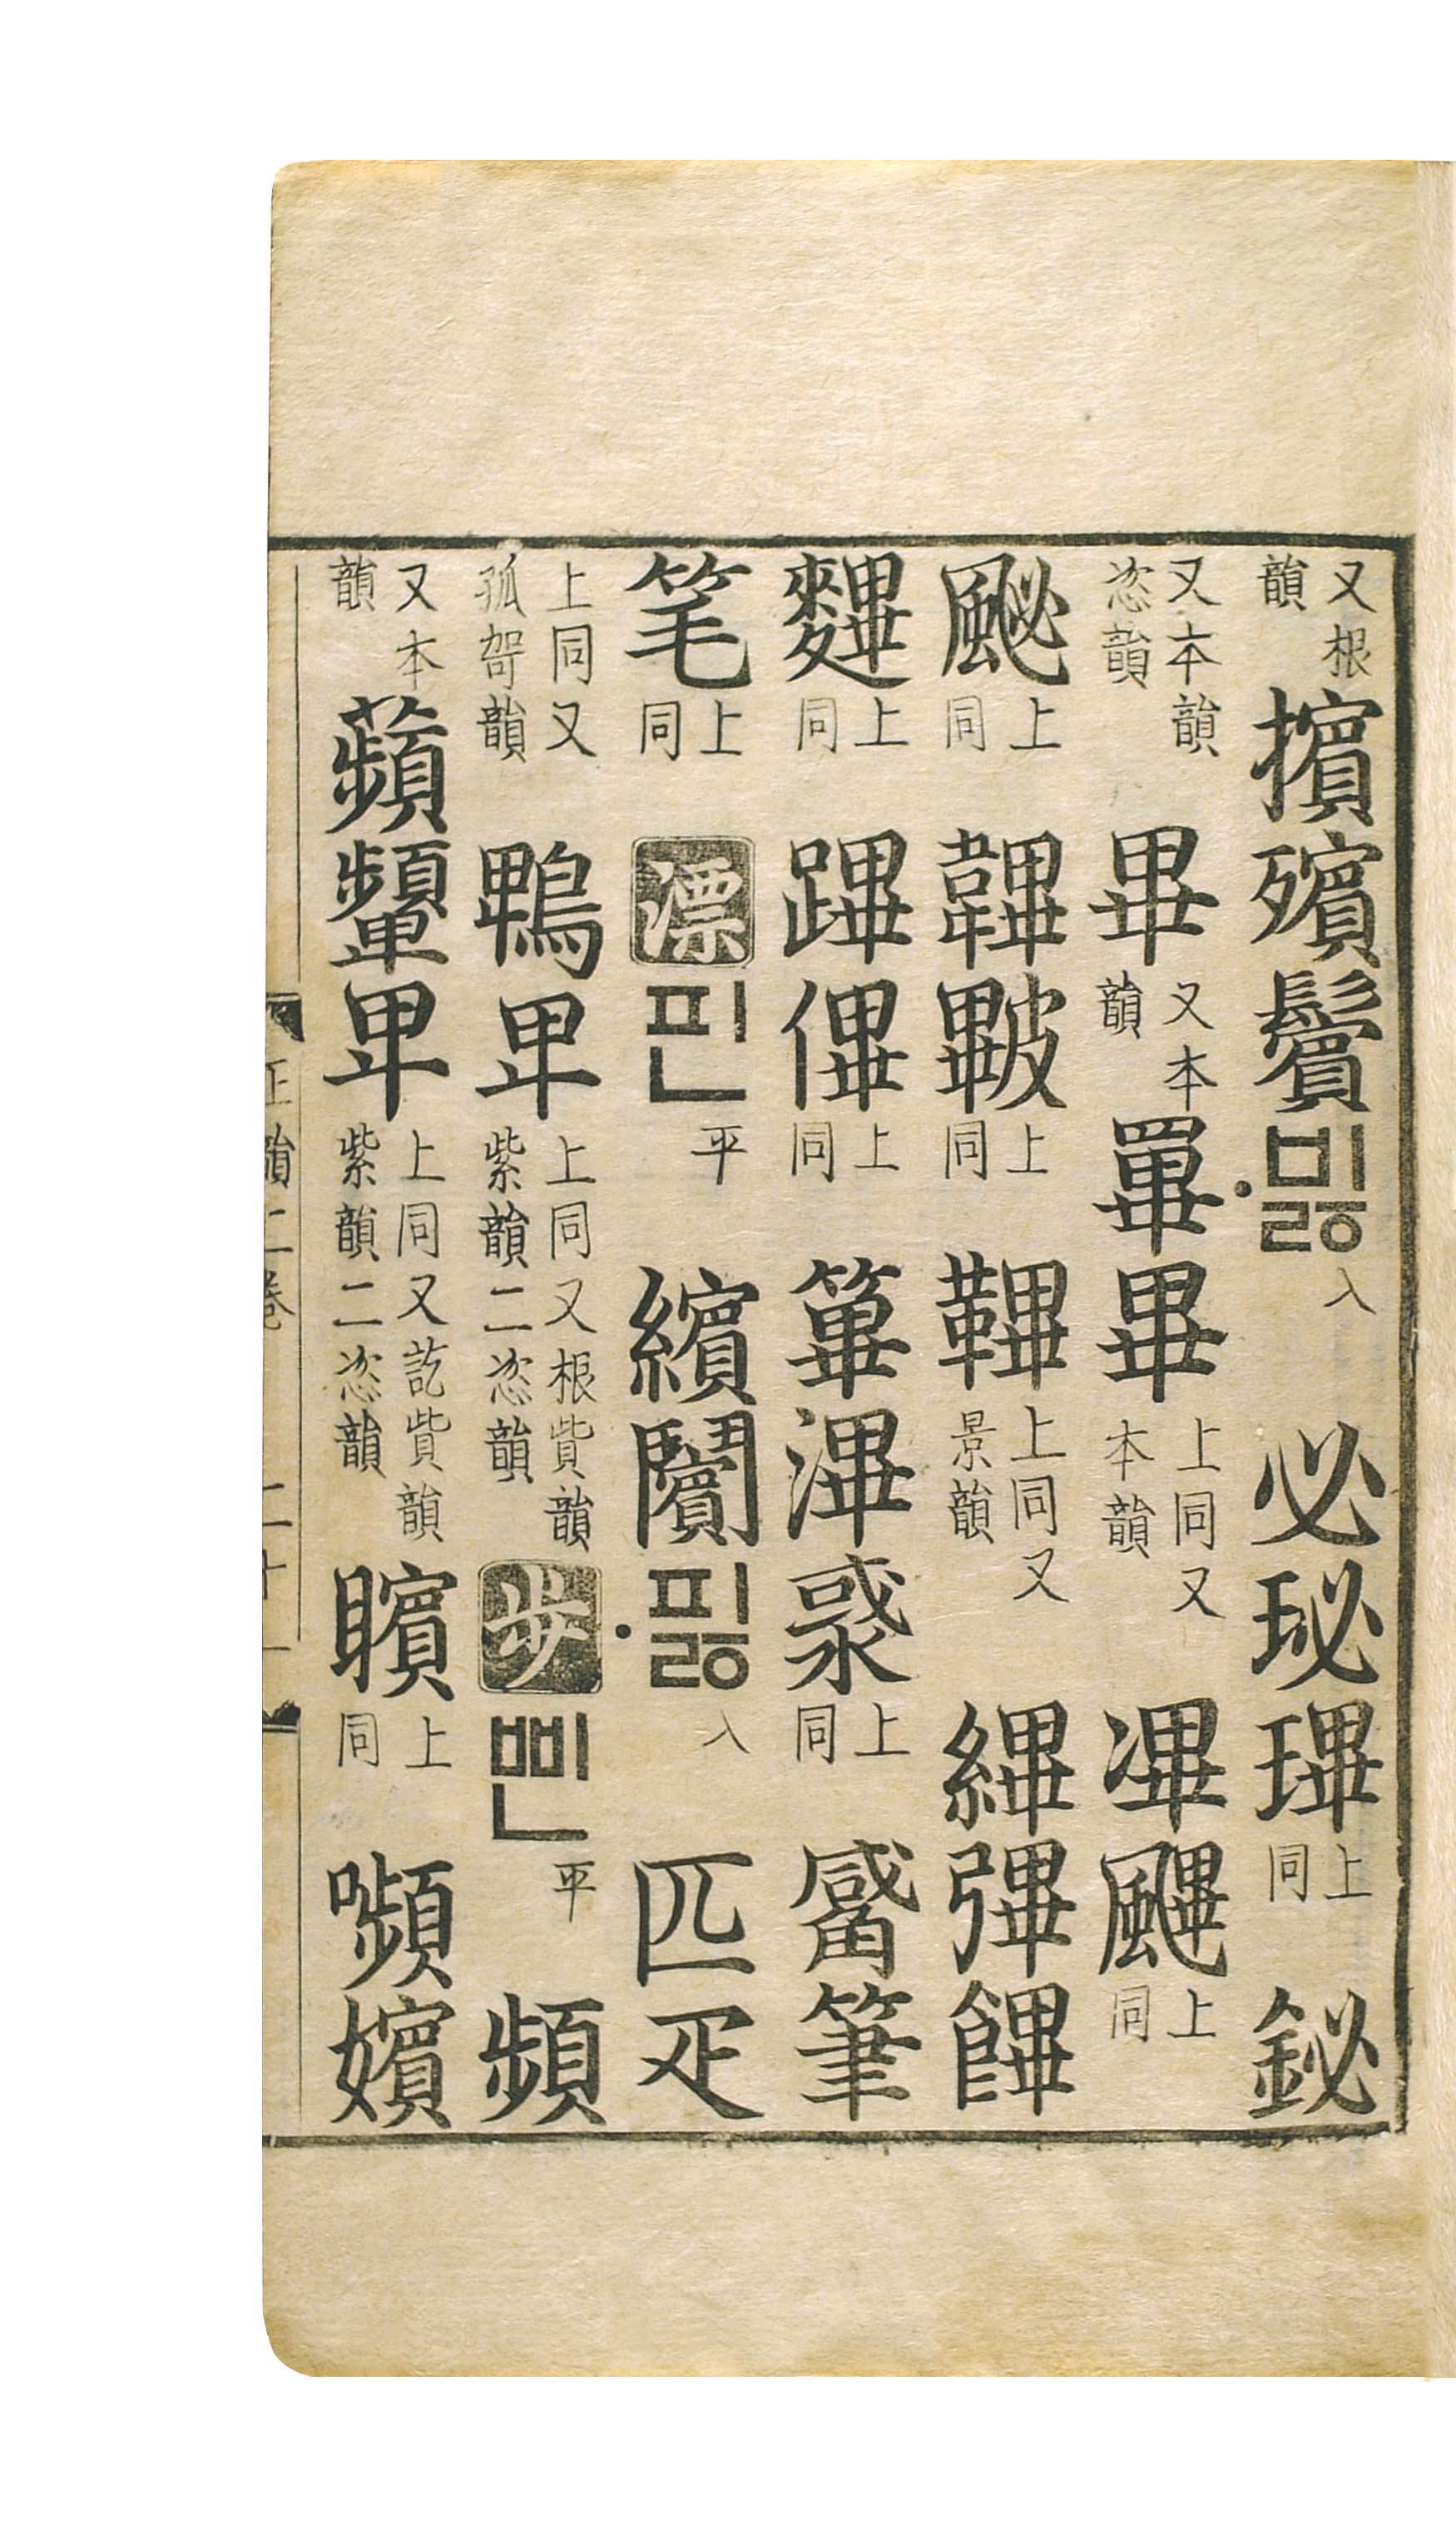 又根韻 擯殯鬢 ·비ᇙ 入 必珌㻫 上同 鉍
又本韻恣韻 畢 又本韻 罼畢 上同又本韻 㓖䬛 上同
䫻 上同 韠 上同 鞸 上同又景韻 縪彃饆
上同 蹕 上同 篳滭 上同 觱筆
笔 上同 漂 핀 平 繽 ·피ᇙ 入 匹疋
上同又孤哿韻 鵯卑 上同又根貲韻紫韻二恣韻 步 삔 平 頻
又本韻 蘋顰卑 上同又訖貲韻紫韻二恣韻 矉 上同 嚬嬪
正韻二卷 二十一